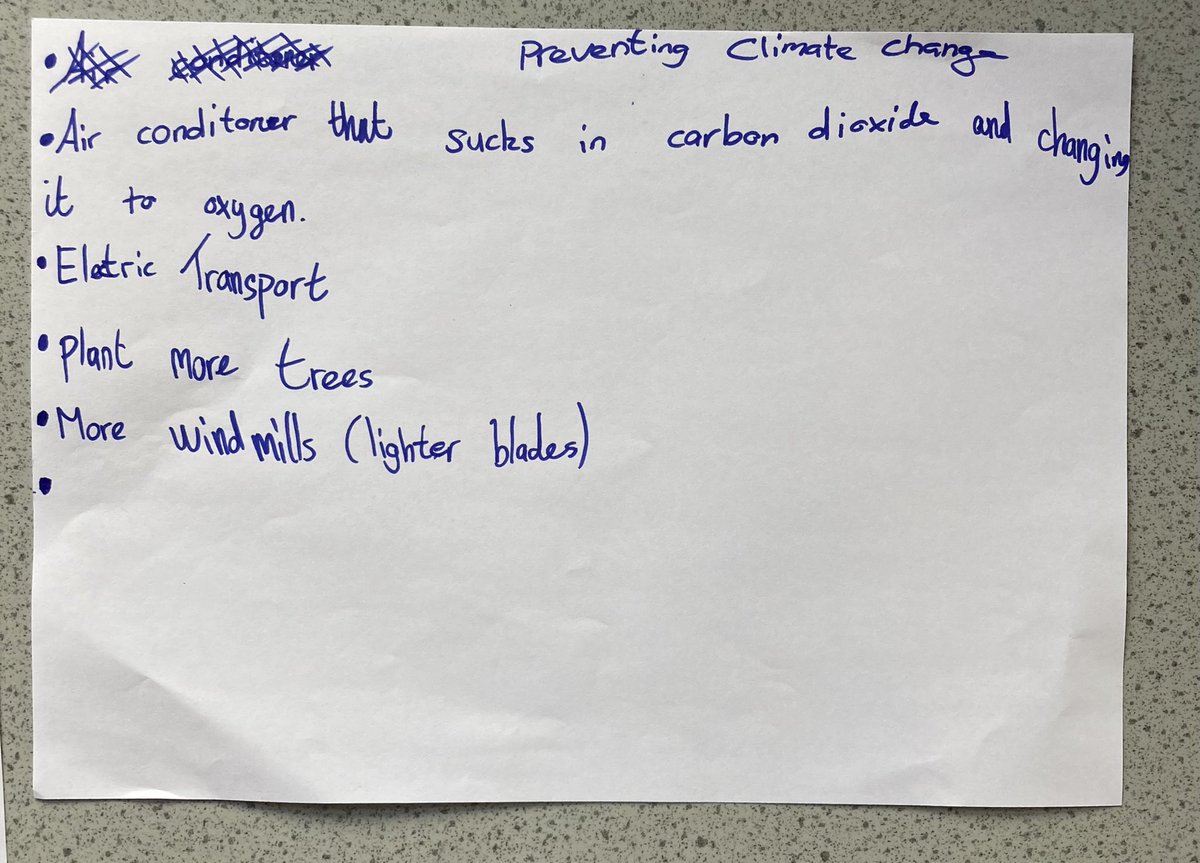 Preventing Climate change
• Air conditoner that sucks in carbon dioxide and changing
it to oxygen.
• Eletric Transport
• Plant more trees
• More windmills (lighter blades)
•